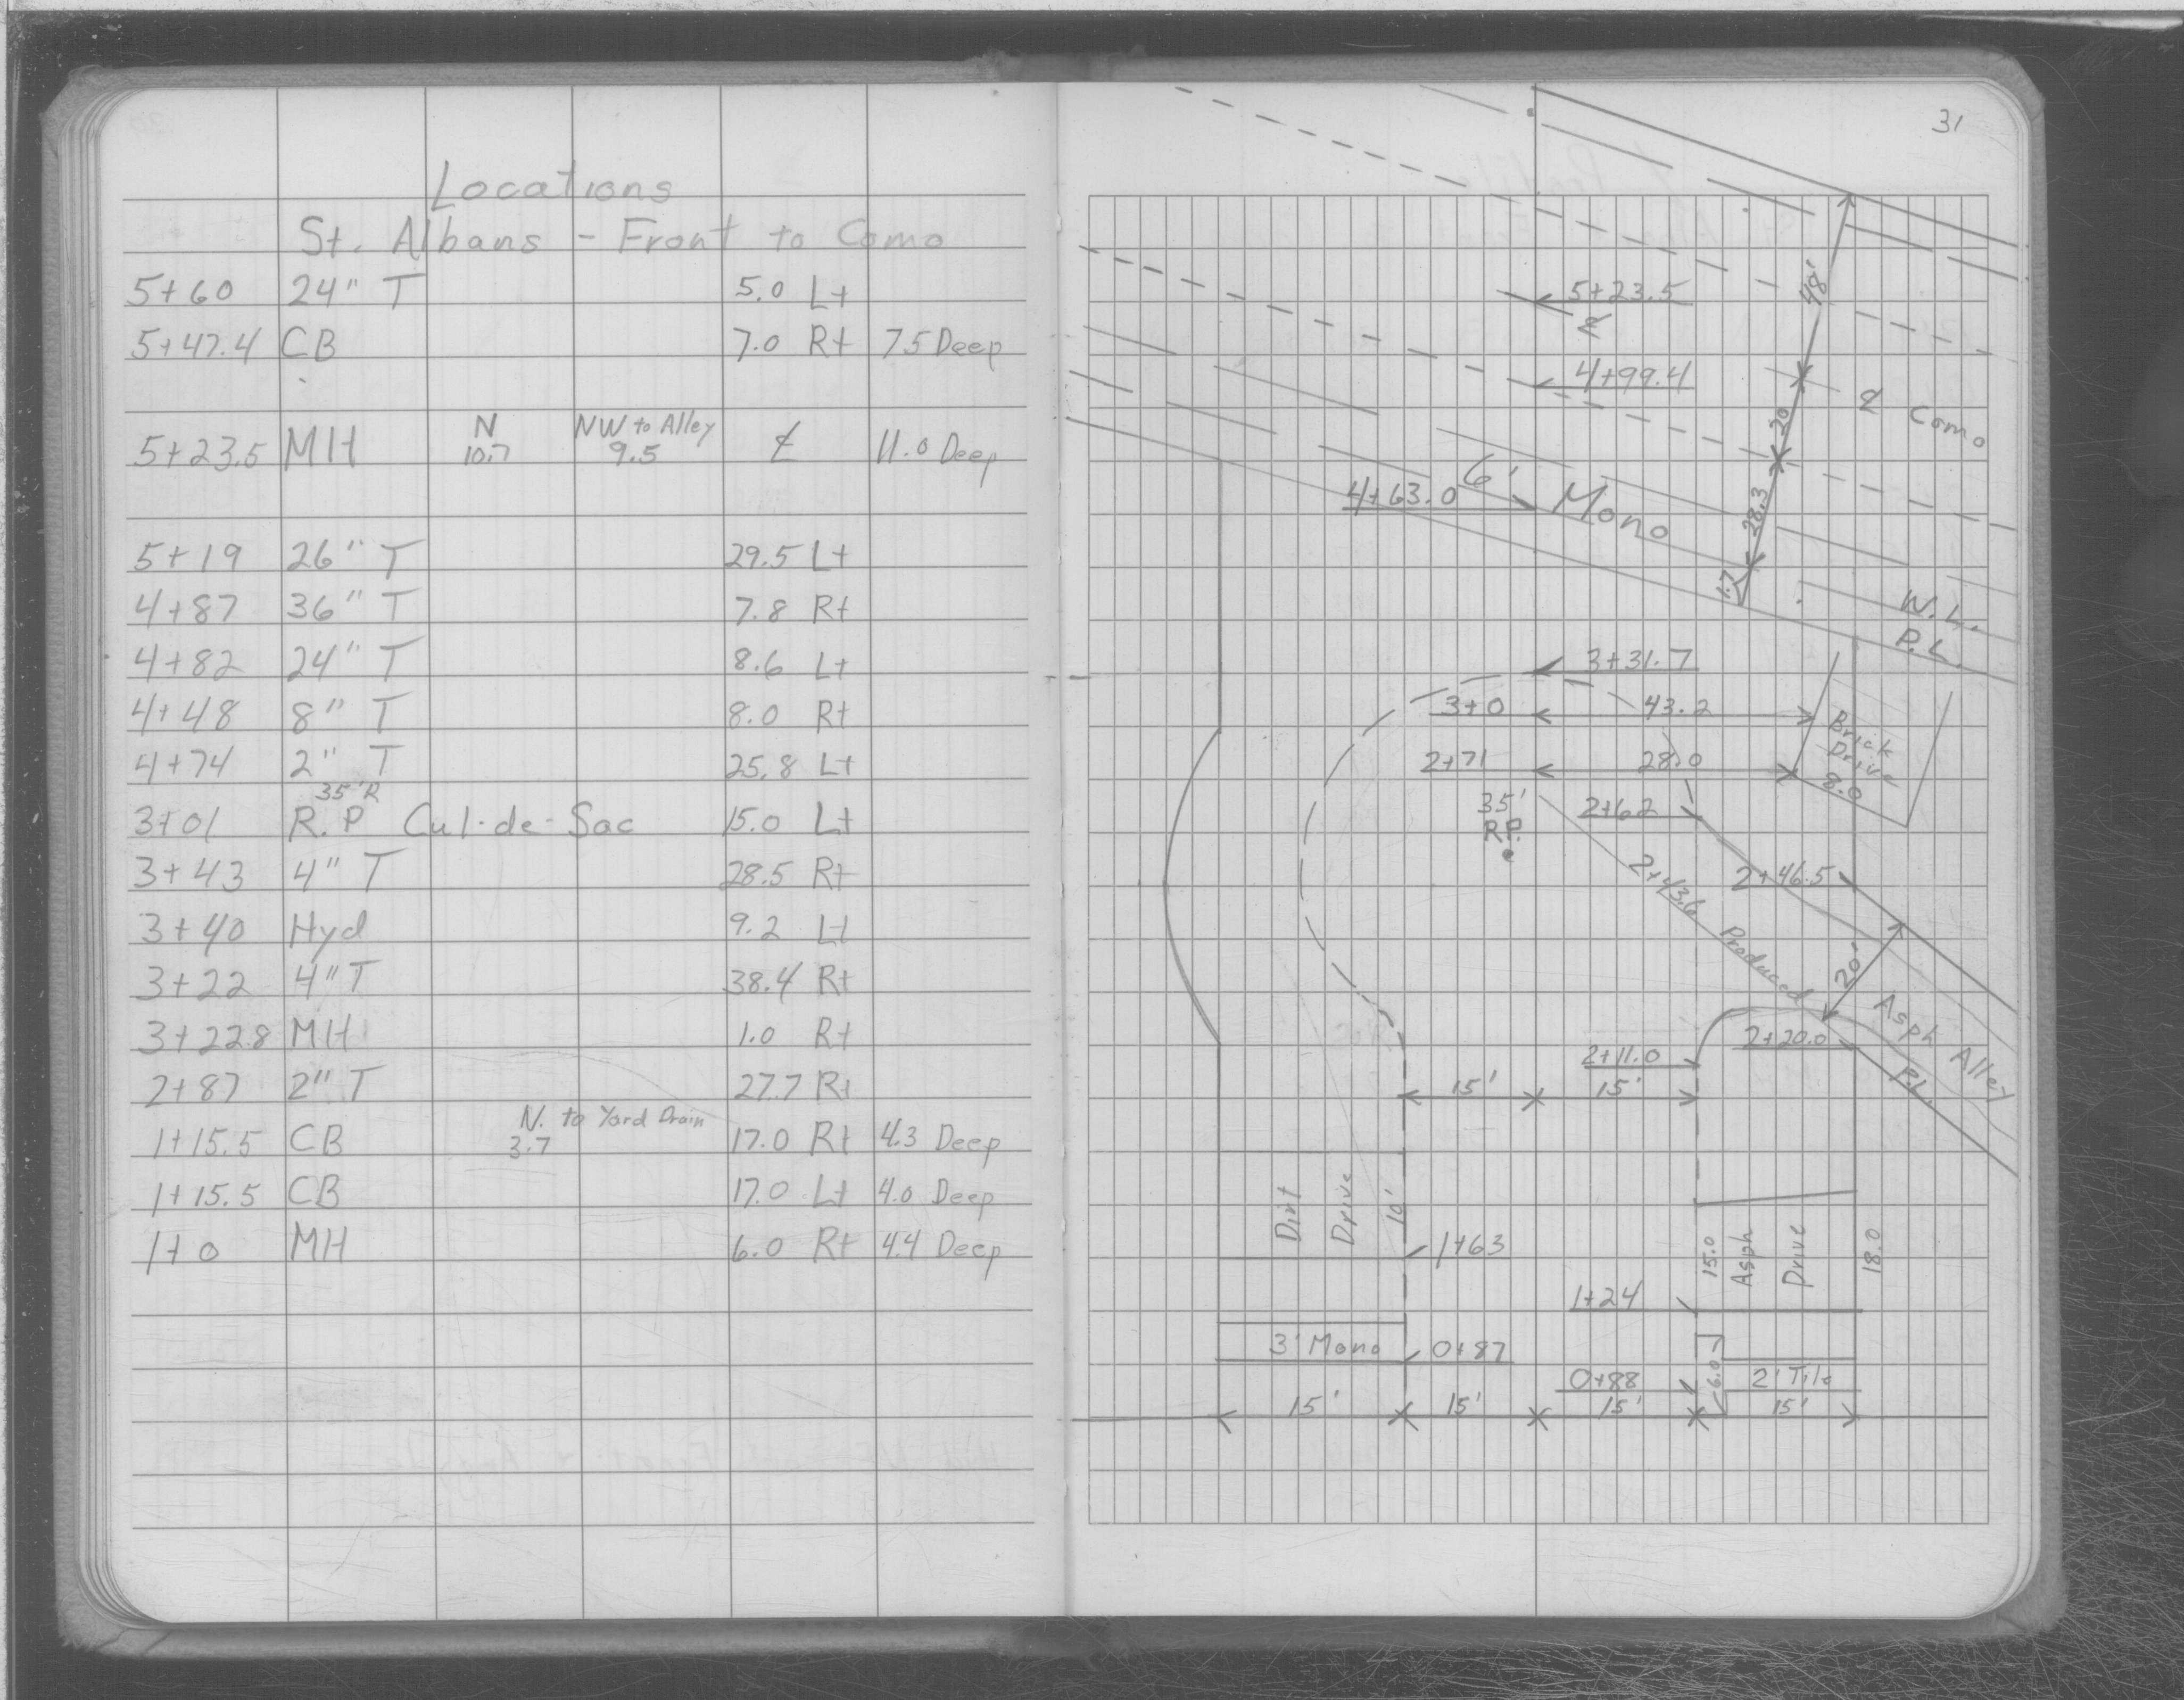 Locations
St. Albans - Front to Como
5+60 24" T 5.0 Lt
5+47.4 CB 7.0 Rt 7.5 Deep
N NW to Alley
5+23.5 MH 10.7 9.5 ℄ 11.0 Deep
5+19 26" T 29.5 Lt
4+87 36" T 7.8 Rt
4+82 24" T 8.6 Lt
4+48 8" T 8.0 Rt
4+74 2" T 25.8 Lt
35'R
3+01 R.P Cul-de-Sac 15.0 Lt
3+43 4" T 28.5 Rt
3+40 Hyd 9.2 Lt
3+22 4" T 38.4 Rt
3+22.8 MH 1.0 Rt
2+87 2" T 27.7 Rt
N. to Yard Drain
1+15.5 CB 3.7 17.0 Rt 4.3 Deep
1+15.5 CB 17.0 Lt 4.0 Deep
1+0 MH 6.0 Rt 4.4 Deep
31
5+23.5
℄
48'
4+99.4
℄ Como
20
4+63.0 6' Mono
28.3
1.7
W.L.
P.L.
3+31.7
3+0 43.2
2+71 28.0
Brick
Drive
8.0
35'
R.P.
2+62
2+43.6 Produced
2+46.5
20'
Asph Alley
2+11.0
2+20.0
P.L.
15' 15'
Dirt
Drive
10'
1+63
15.0
Asph
Drive
18.0
1+24
3' Mono 0+87
6.0
0+88 2' Tile
15' 15' 15' 15'